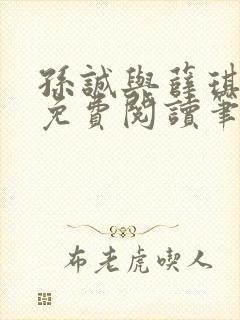 孫誠與薛琪
免費閱讀筆
布老虎喫人